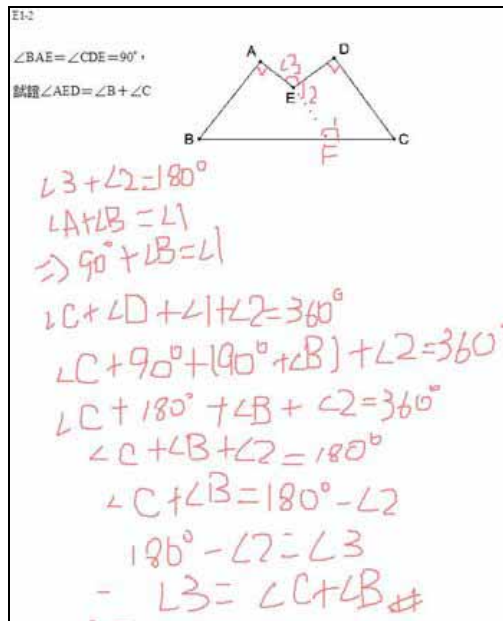 E1-2
∠BAE=∠CDE=90°，
試證∠AED=∠B+∠C
A
D
∠3
E
2
1
B
F
C
∠3+∠2=180°
∠A+∠B=∠1
=> 90°+∠B=∠1
∠C+∠D+∠1+∠2=360°
∠C+90°+(90°+∠B)+∠2=360°
∠C+180°+∠B+∠2=360°
∠C+∠B+∠2=180°
∠C+∠B=180°-∠2
180°-∠2=∠3
- ∠3=∠C+∠B #